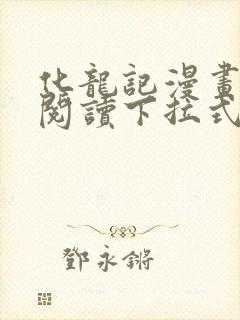 化龍記漫畫
閱讀下拉式
鄧永鏘